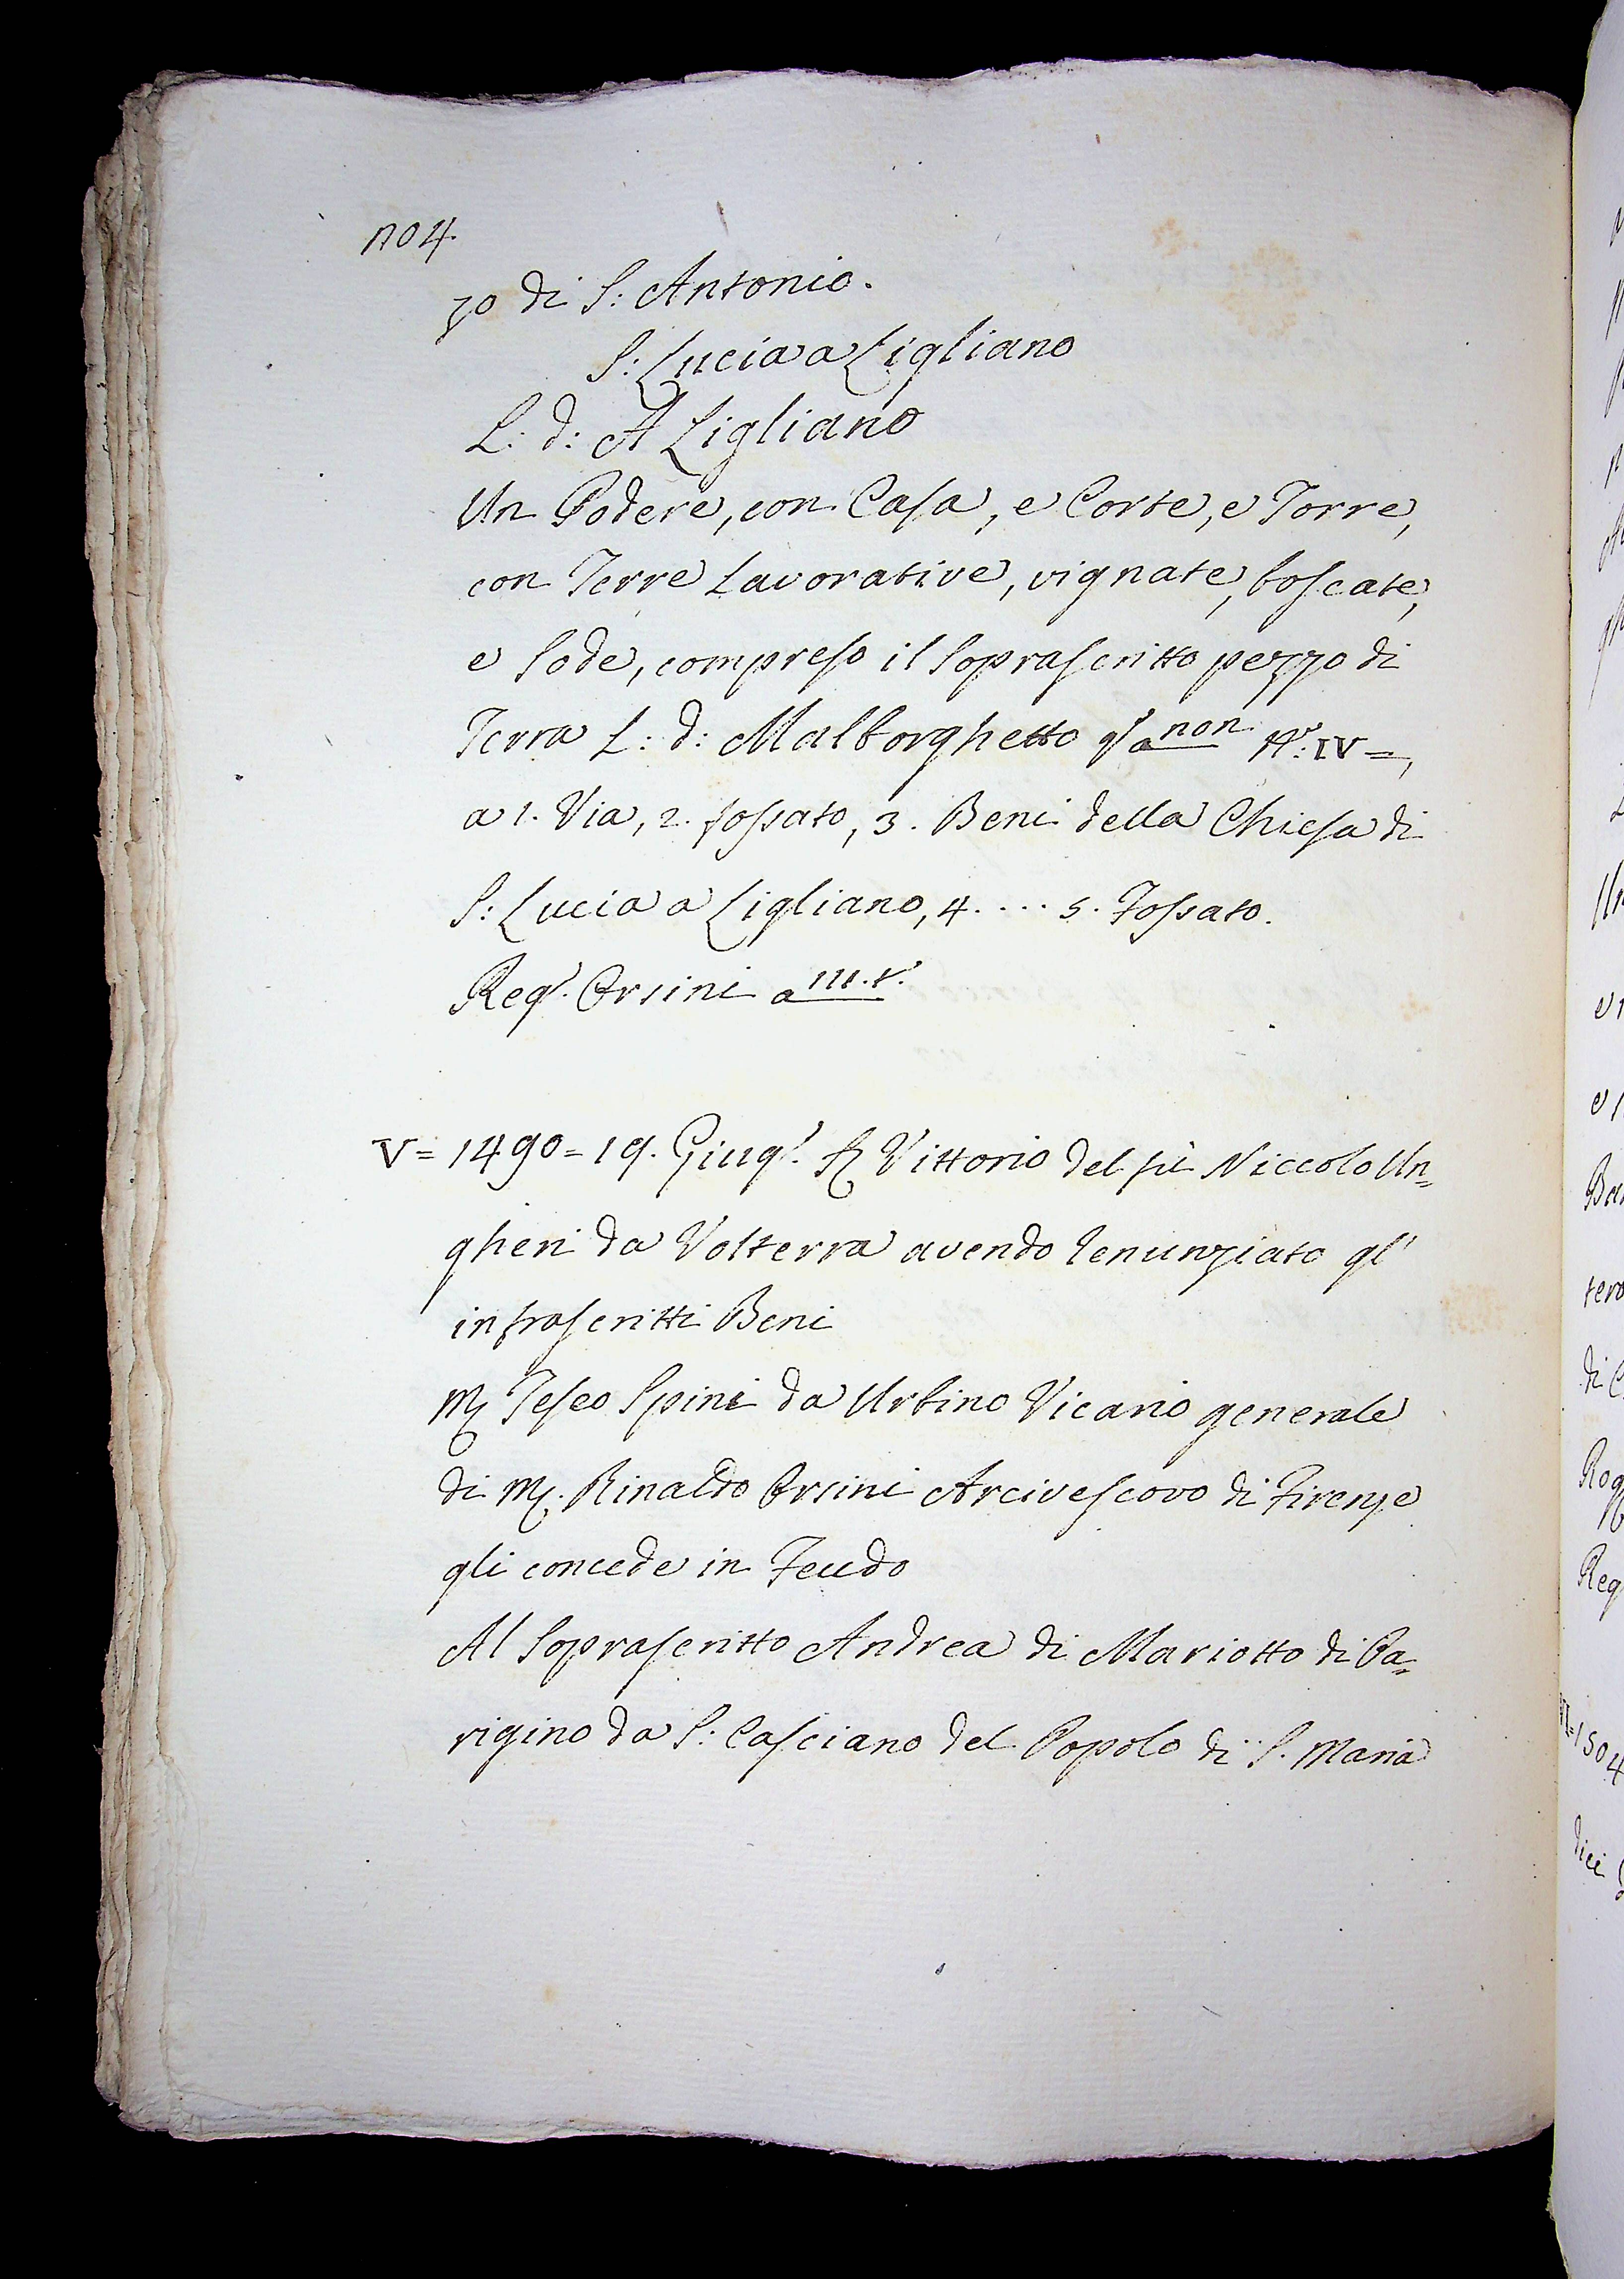 1104.
zo di S: Antonio.
S: Lucia a Ligliano
L: d: A Ligliano
Un Podere, con Casa, e Corte, e Torre,
con Terre Lavorative, vignate, boscate,
e Sode, compreso il Soprascritto pezzo di
Terra L: d: Malborghetto N.º IV=,
a 1. Via, 2. fossato, 3. Beni della Chiesa di
S: Lucia a Ligliano, 4. ... 5. Fossato.
Reg.º Orsini a 111.t.º
V= 1490= 19. Giug.º Vittorio del fù Niccolo Un=
gheri da Volterra avendo renunziato gl'
infrascritti Beni
M. Teseo Spini da Urbino Vicario generale
di M. Rinaldo Orsini Arcivescovo di Firenze
gli concede in Feudo
Al Soprascritto Andrea di Mariotto di Pa=
rigino da S: Casciano del Popolo di S. Maria